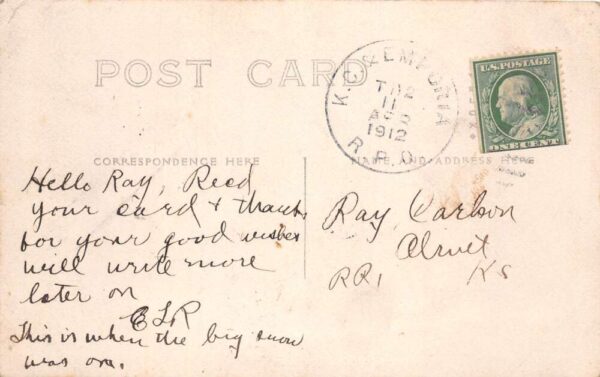 POST CARD
K.C. & EMPORIA
TR 2
11
APR
1912
R.P.O.
U.S. POSTAGE
ONE CENT
CORRESPONDENCE HERE
NAME AND ADDRESS HERE
Hello Ray, Recd
your card & thanks
for your good wishes
will write more
later on
ELR
This is when the big snow
was on.
Ray Carlson
RR1 Ks